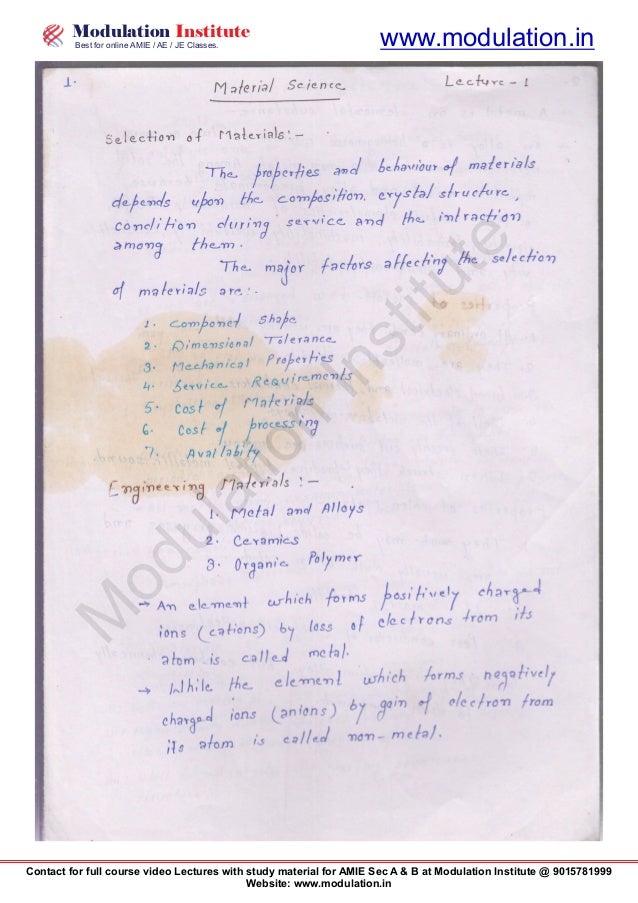 Modulation Institute
Best for online AMIE / AE / JE Classes.
www.modulation.in
1.
Material Science
Lecture - 1
Selection of Materials :-
The properties and behaviour of materials
depends upon the composition, crystal structure,
condition during service and the intraction
among them.
The major factors affecting the selection
of materials are :-
1. Componet Shape
2. Dimensional Tolerance
3. Mechanical Properties
4. Service Requirements
5. Cost of Materials
6. Cost of processing
7. Availabity
Engineering Materials :-
1. Metal and Alloys
2. Ceramics
3. Organic Polymer
→ An element which forms positively charged
ions (cations) by loss of electrons from its
atom is called metal.
→ While the element which forms negatively
charged ions (anions) by gain of electron from
its atom is called non-metal.
Modulation Institute
Contact for full course video Lectures with study material for AMIE Sec A & B at Modulation Institute @ 9015781999
Website: www.modulation.in